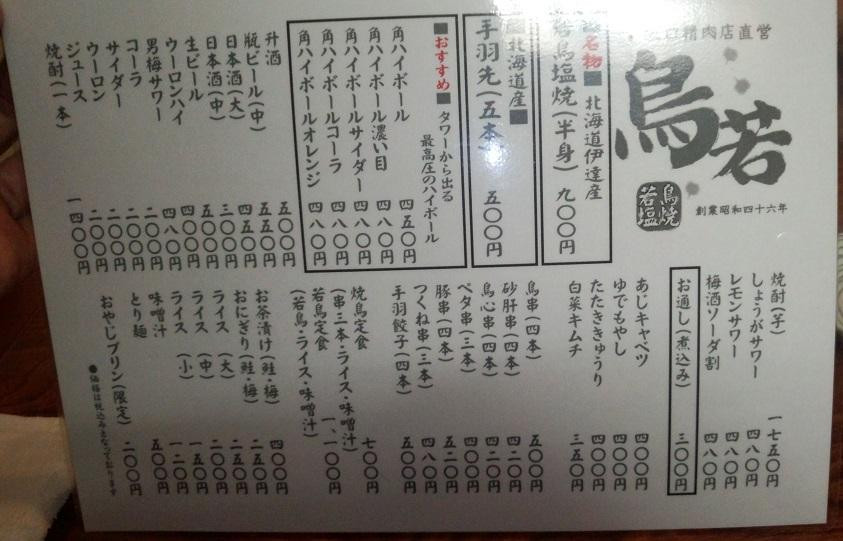 口精肉店直営
鳥若
鳥焼
若塩
創業昭和四十六年
■名物■ 北海道伊達産
若鳥塩焼(半身) 九〇〇円
■北海道産■
手羽先(五本) 五〇〇円
■おすすめ■ タワーから出る
最高圧のハイボール
角ハイボール 四五〇円
角ハイボール濃い目 四八〇円
角ハイボールサイダー 四八〇円
角ハイボールコーラ 四八〇円
角ハイボールオレンジ 四八〇円
升酒 五〇〇円
瓶ビール(中) 五五〇円
日本酒(大) 四五〇円
日本酒(中) 三〇〇円
生ビール 五〇〇円
ウーロンハイ 四〇〇円
男梅サワー 四八〇円
コーラ 二〇〇円
サイダー 二〇〇円
ウーロン 二〇〇円
ジュース 二〇〇円
焼酎(一本) 一四〇〇円
焼酎(芋) 一七五〇円
しょうがサワー 四八〇円
レモンサワー 四八〇円
梅酒ソーダ割 四八〇円
お通し(煮込み) 三〇〇円
あじキャベツ 四〇〇円
ゆでもやし 四〇〇円
たたききゅうり 四〇〇円
白菜キムチ 三五〇円
鳥串(四本) 五〇〇円
砂肝串(四本) 四二〇円
鳥心串(四本) 四二〇円
ペタ串(三本) 四〇〇円
豚串(四本) 五二〇円
つくね串(三本) 四八〇円
手羽餃子(四本) 五〇〇円
焼鳥定食 七〇〇円
(串三本・ライス・味噌汁)
若鳥定食 一、一〇〇円
(若鳥・ライス・味噌汁)
お茶漬け(鮭・梅) 四〇〇円
おにぎり(鮭・梅) 二五〇円
ライス(大) 二五〇円
ライス(中) 二〇〇円
ライス(小) 一五〇円
味噌汁 一二〇円
とり麺 五〇〇円
おやじプリン(限定) 二〇〇円
●価格は税込みとなっております